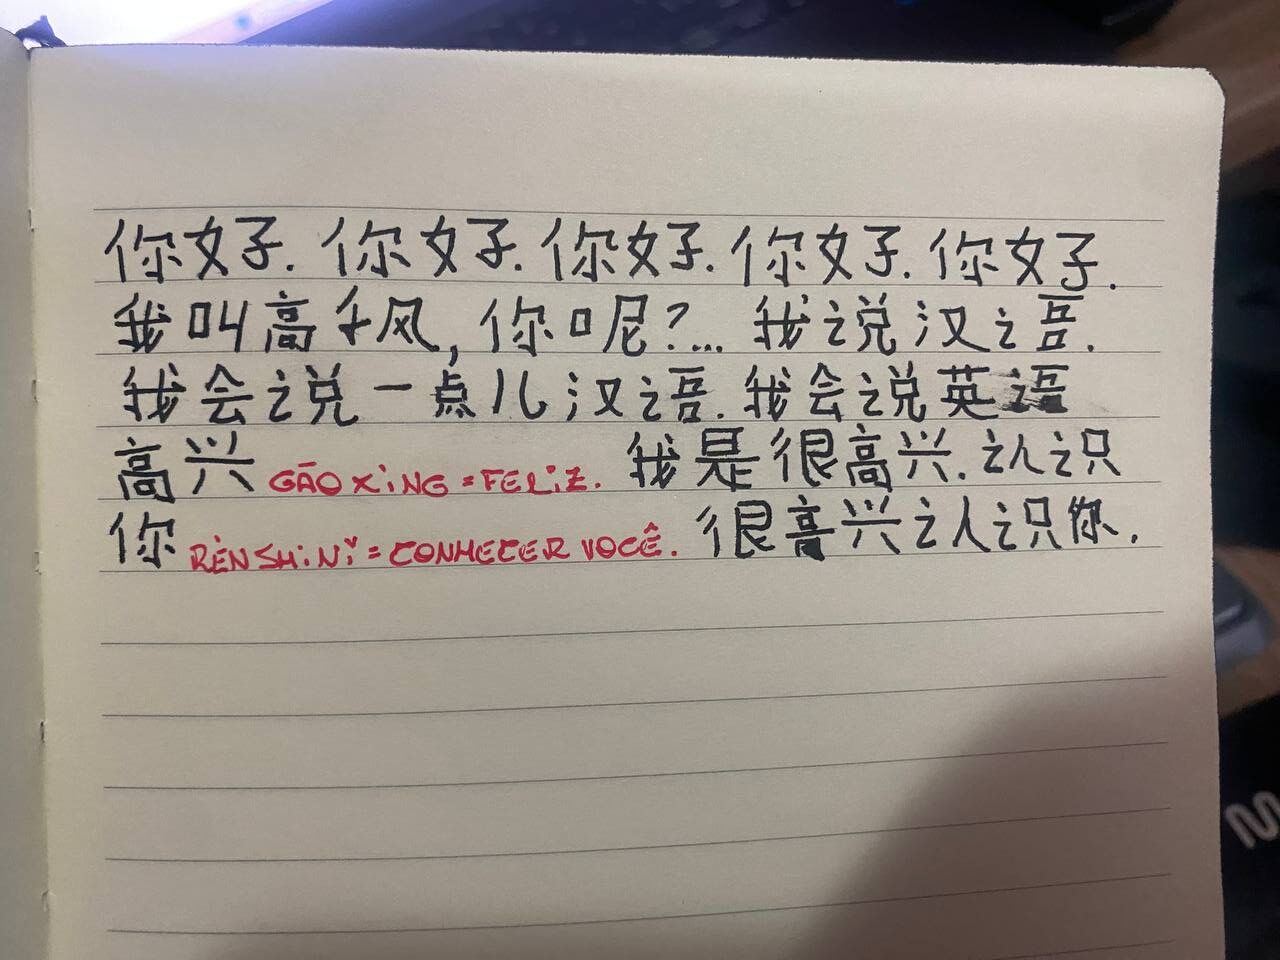 你好. 你好. 你好. 你好. 你好.
我叫高千风, 你呢?... 我说汉语.
我会说一点儿汉语. 我会说英语
高兴 GĀOXÌNG = FELIZ. 我是很高兴. 认识
你 RÈNSHiNǏ = CONHECER VOCÊ. 很高兴认识你.